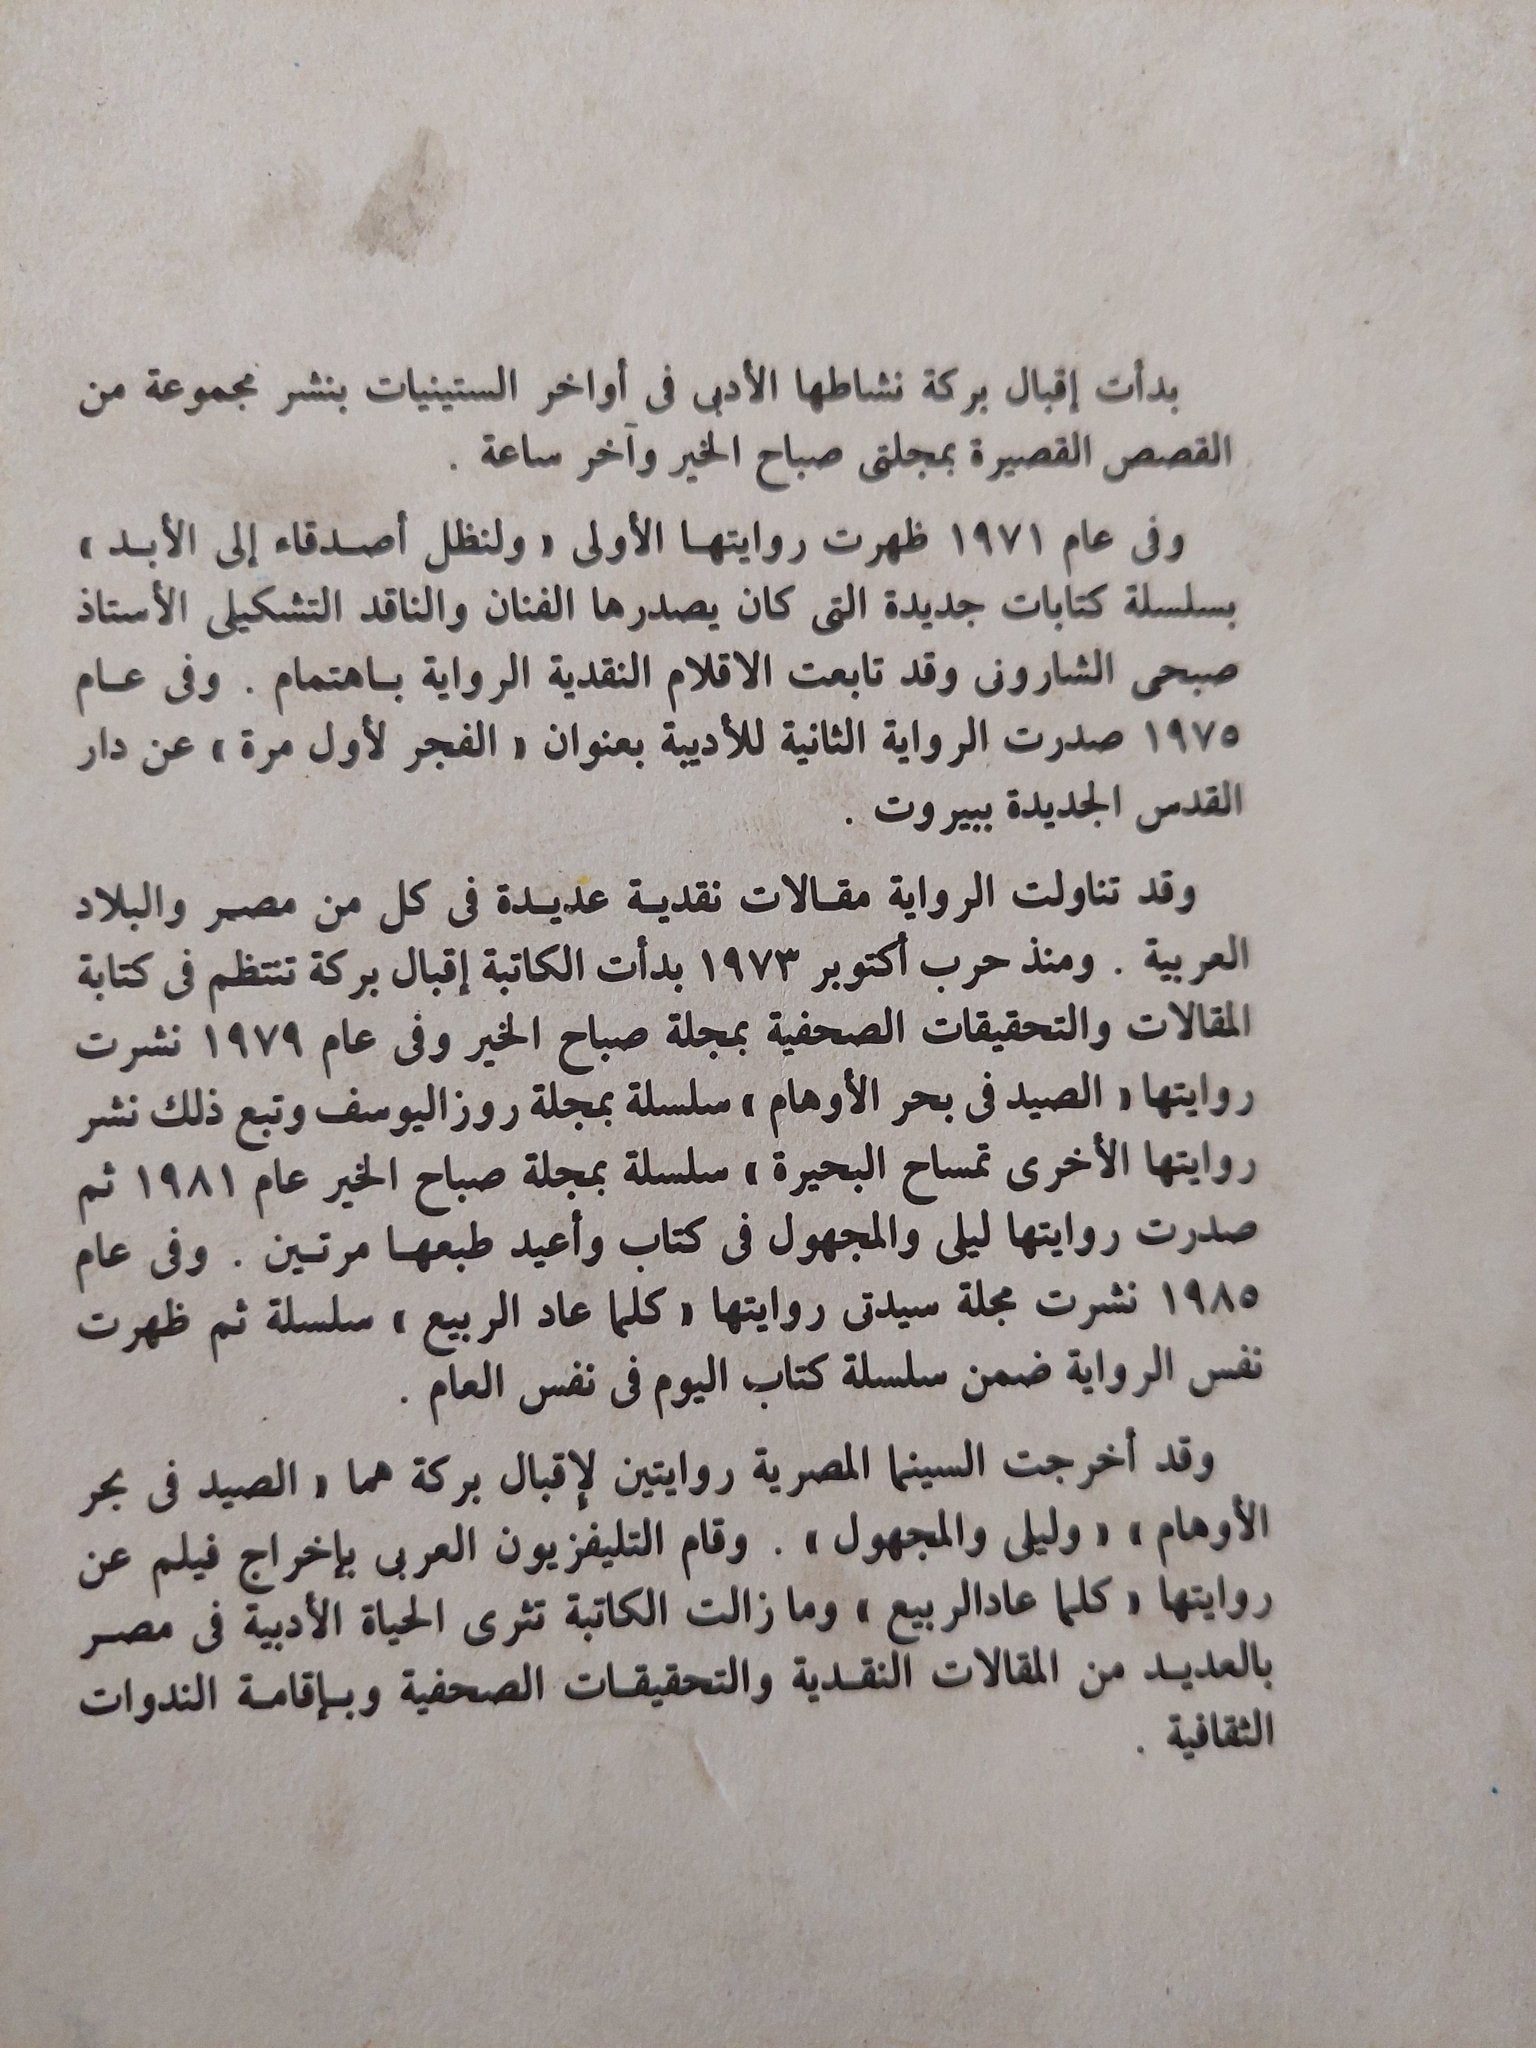 بدأت إقبال بركة نشاطها الأدبى فى أواخر الستينيات بنشر مجموعة من
القصص القصيرة بمجلتى صباح الخير وآخر ساعة .
وفى عام ١٩٧١ ظهرت روايتها الأولى « ولنظل أصدقاء إلى الأبد »
بسلسلة كتابات جديدة التى كان يصدرها الفنان والناقد التشكيلى الأستاذ
صبحى الشارونى وقد تابعت الاقلام النقدية الرواية باهتمام . وفى عام
١٩٧٥ صدرت الرواية الثانية للأديبة بعنوان « الفجر لأول مرة » عن دار
القدس الجديدة ببيروت .
وقد تناولت الرواية مقالات نقدية عديدة فى كل من مصر والبلاد
العربية . ومنذ حرب أكتوبر ١٩٧٣ بدأت الكاتبة إقبال بركة تنتظم فى كتابة
المقالات والتحقيقات الصحفية بمجلة صباح الخير وفى عام ١٩٧٩ نشرت
روايتها « الصيد فى بحر الأوهام » سلسلة بمجلة روزاليوسف وتبع ذلك نشر
روايتها الأخرى تمساح البحيرة » سلسلة بمجلة صباح الخير عام ١٩٨١ ثم
صدرت روايتها ليلى والمجهول فى كتاب وأعيد طبعها مرتين . وفى عام
١٩٨٥ نشرت مجلة سيدتى روايتها « كلما عاد الربيع » سلسلة ثم ظهرت
نفس الرواية ضمن سلسلة كتاب اليوم فى نفس العام .
وقد أخرجت السينما المصرية روايتين لإقبال بركة هما « الصيد فى بحر
الأوهام » « وليلى والمجهول » . وقام التليفزيون العربى بإخراج فيلم عن
روايتها « كلما عادالربيع » وما زالت الكاتبة تثرى الحياة الأدبية فى مصر
بالعديد من المقالات النقدية والتحقيقات الصحفية وبإقامة الندوات
الثقافية .